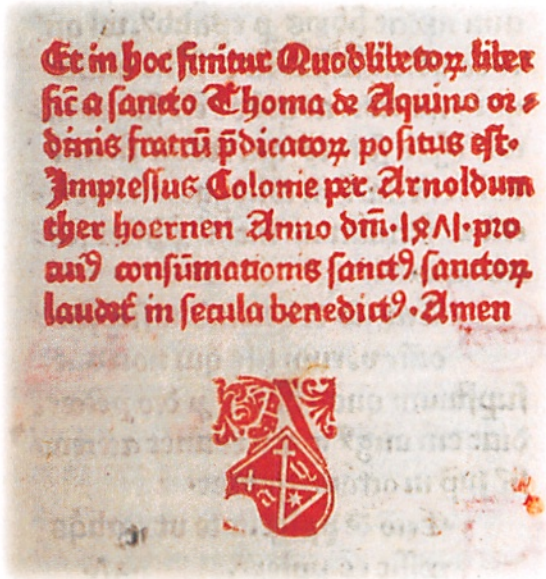 Et in hoc finitur Quodlibetoꝝ liber
sic̄ a sancto Thoma de Aquino or⸗
dinis fratrū p̄dicatoꝝ positus est·
Impressus Colonie per Arnoldum
ther hoernen Anno dm̄·1ꝝΛ1·pro
cuiꝰ consūmationis sanctꝰ sanctoꝝ
laudet̄ in secula benedictꝰ·Amen